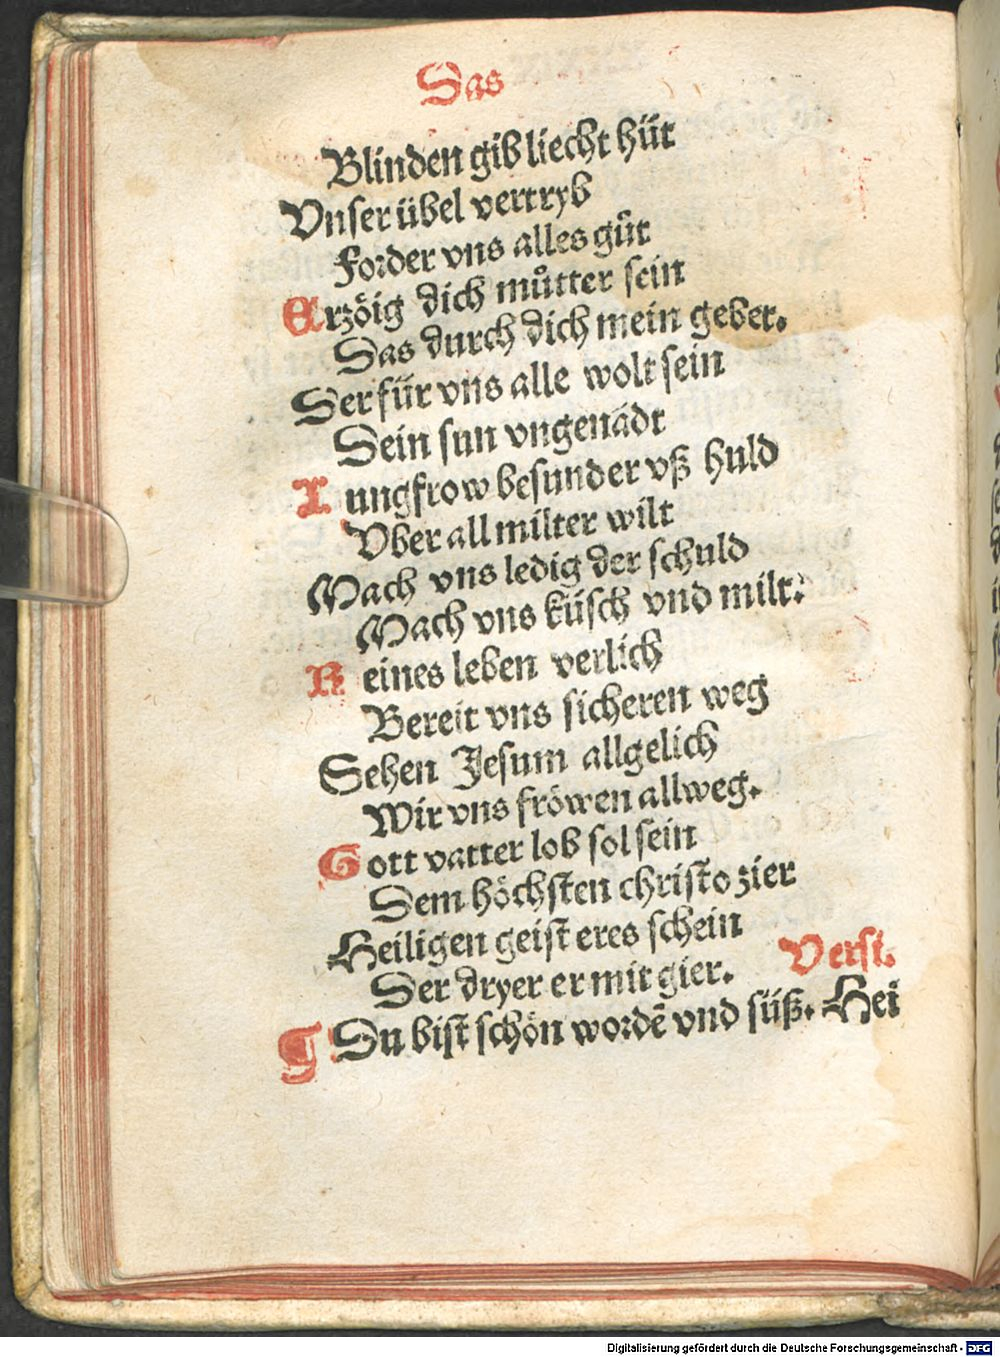 Das
Blinden gib liecht hüt
Vnser übel vertryb
Forder vns alles gůt
Erzöig dich můtter sein
Das durch dich mein geber.
Der für vns alle wolt sein
Dein sun vngenådt
Iungfrow besunder vß huld
Vber all milter wilt
Mach vns ledig der schuld
Mach vns küsch vnd milt:
Reines leben verlich
Bereit vns sicheren weg
Sehen Jesum allgelich
Wir vns fröwen allweg.
Gott vatter lob sol sein
Dem höchsten christo zier
Heiligen geist eres schein
Der dryer er mit gier. Versi.
¶ Du bist schön wordē vnd süß. Hei
Digitalisierung gefördert durch die Deutsche Forschungsgemeinschaft - DFG